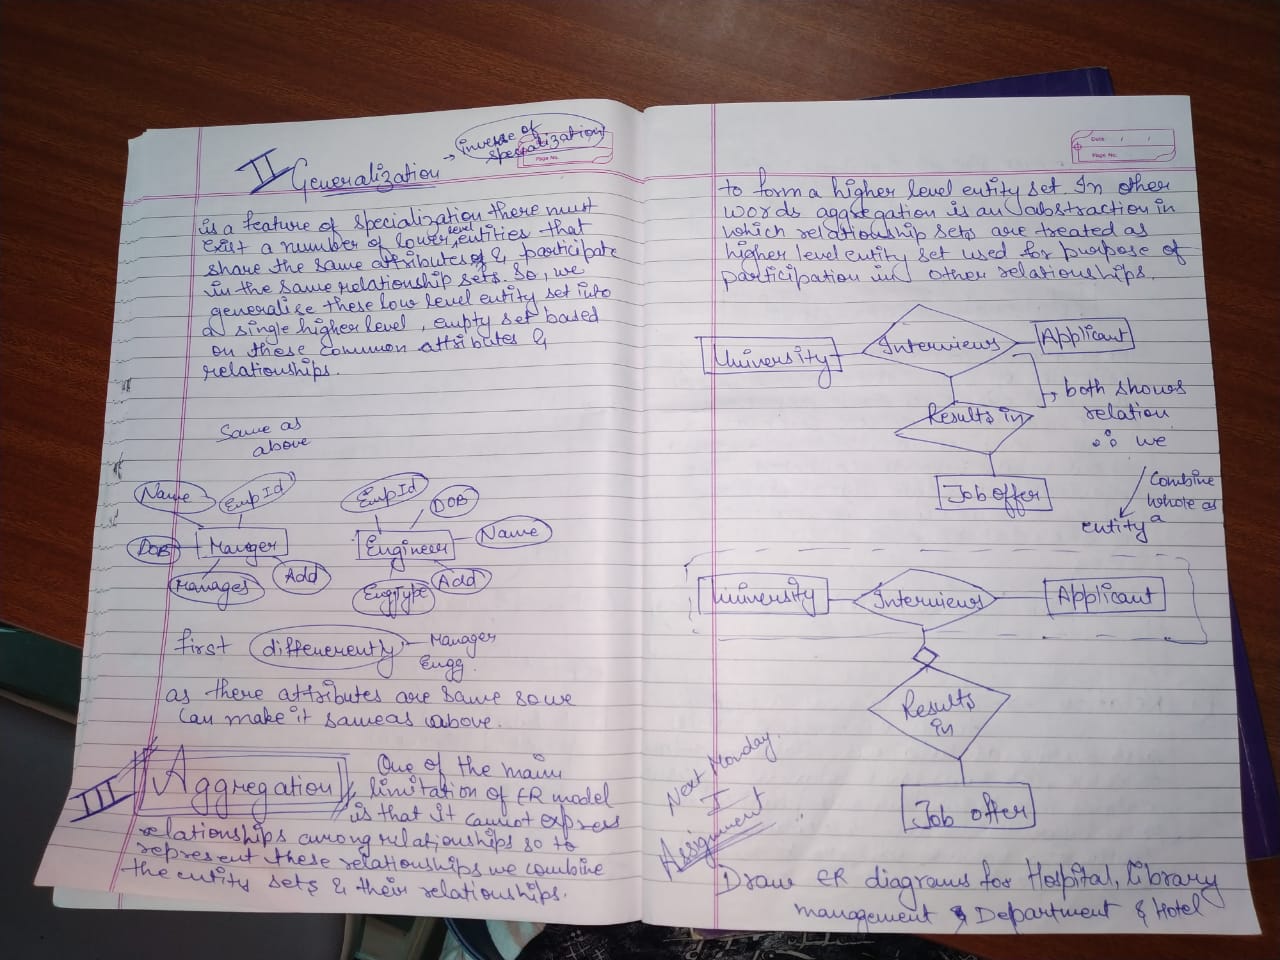 II Generalization → inverse of
specialization
Page No.
is a feature of specialization there must
exist a number of lower level entities that
share the same attributes of & participate
in the same relationship sets. So, we
generalise these low level entity set into
a single higher level, empty set based
on these common attributes &
relationships.
Same as
above
Name
Emp Id
DOB
Manger
Manages
Add
Emp Id
DOB
Name
Engineer
EnggType
Add
first differerently - Manager
Engg.
as there attributes are same so we
can make it same as above.
III Aggregation One of the main
limitation of ER model
is that it cannot express
relationships among relationships so to
represent these relationships we combine
the entity sets & their relationships.
Date / /
Page No.
to form a higher level entity set. In other
words aggregation is an abstraction in
which relationship sets are treated as
higher level entity set used for purpose of
participation in other relationships.
University Interviews Applicant
Results in
Job offer
both shows
relation
∴ we
Combine
whole as
a
entity
University Interviews Applicant
Results
in
Job offer
Next Monday.
I
Assignment
Draw ER diagrams for Hospital, Library
management & Department & Hotel